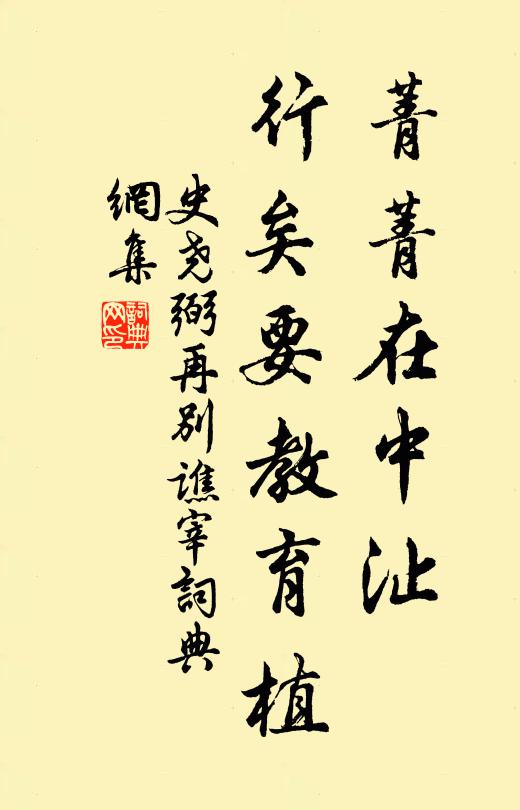 菁菁在中沚
行矣要教育植
史尧弼再别譙宰詞典
網集
詞典
网印